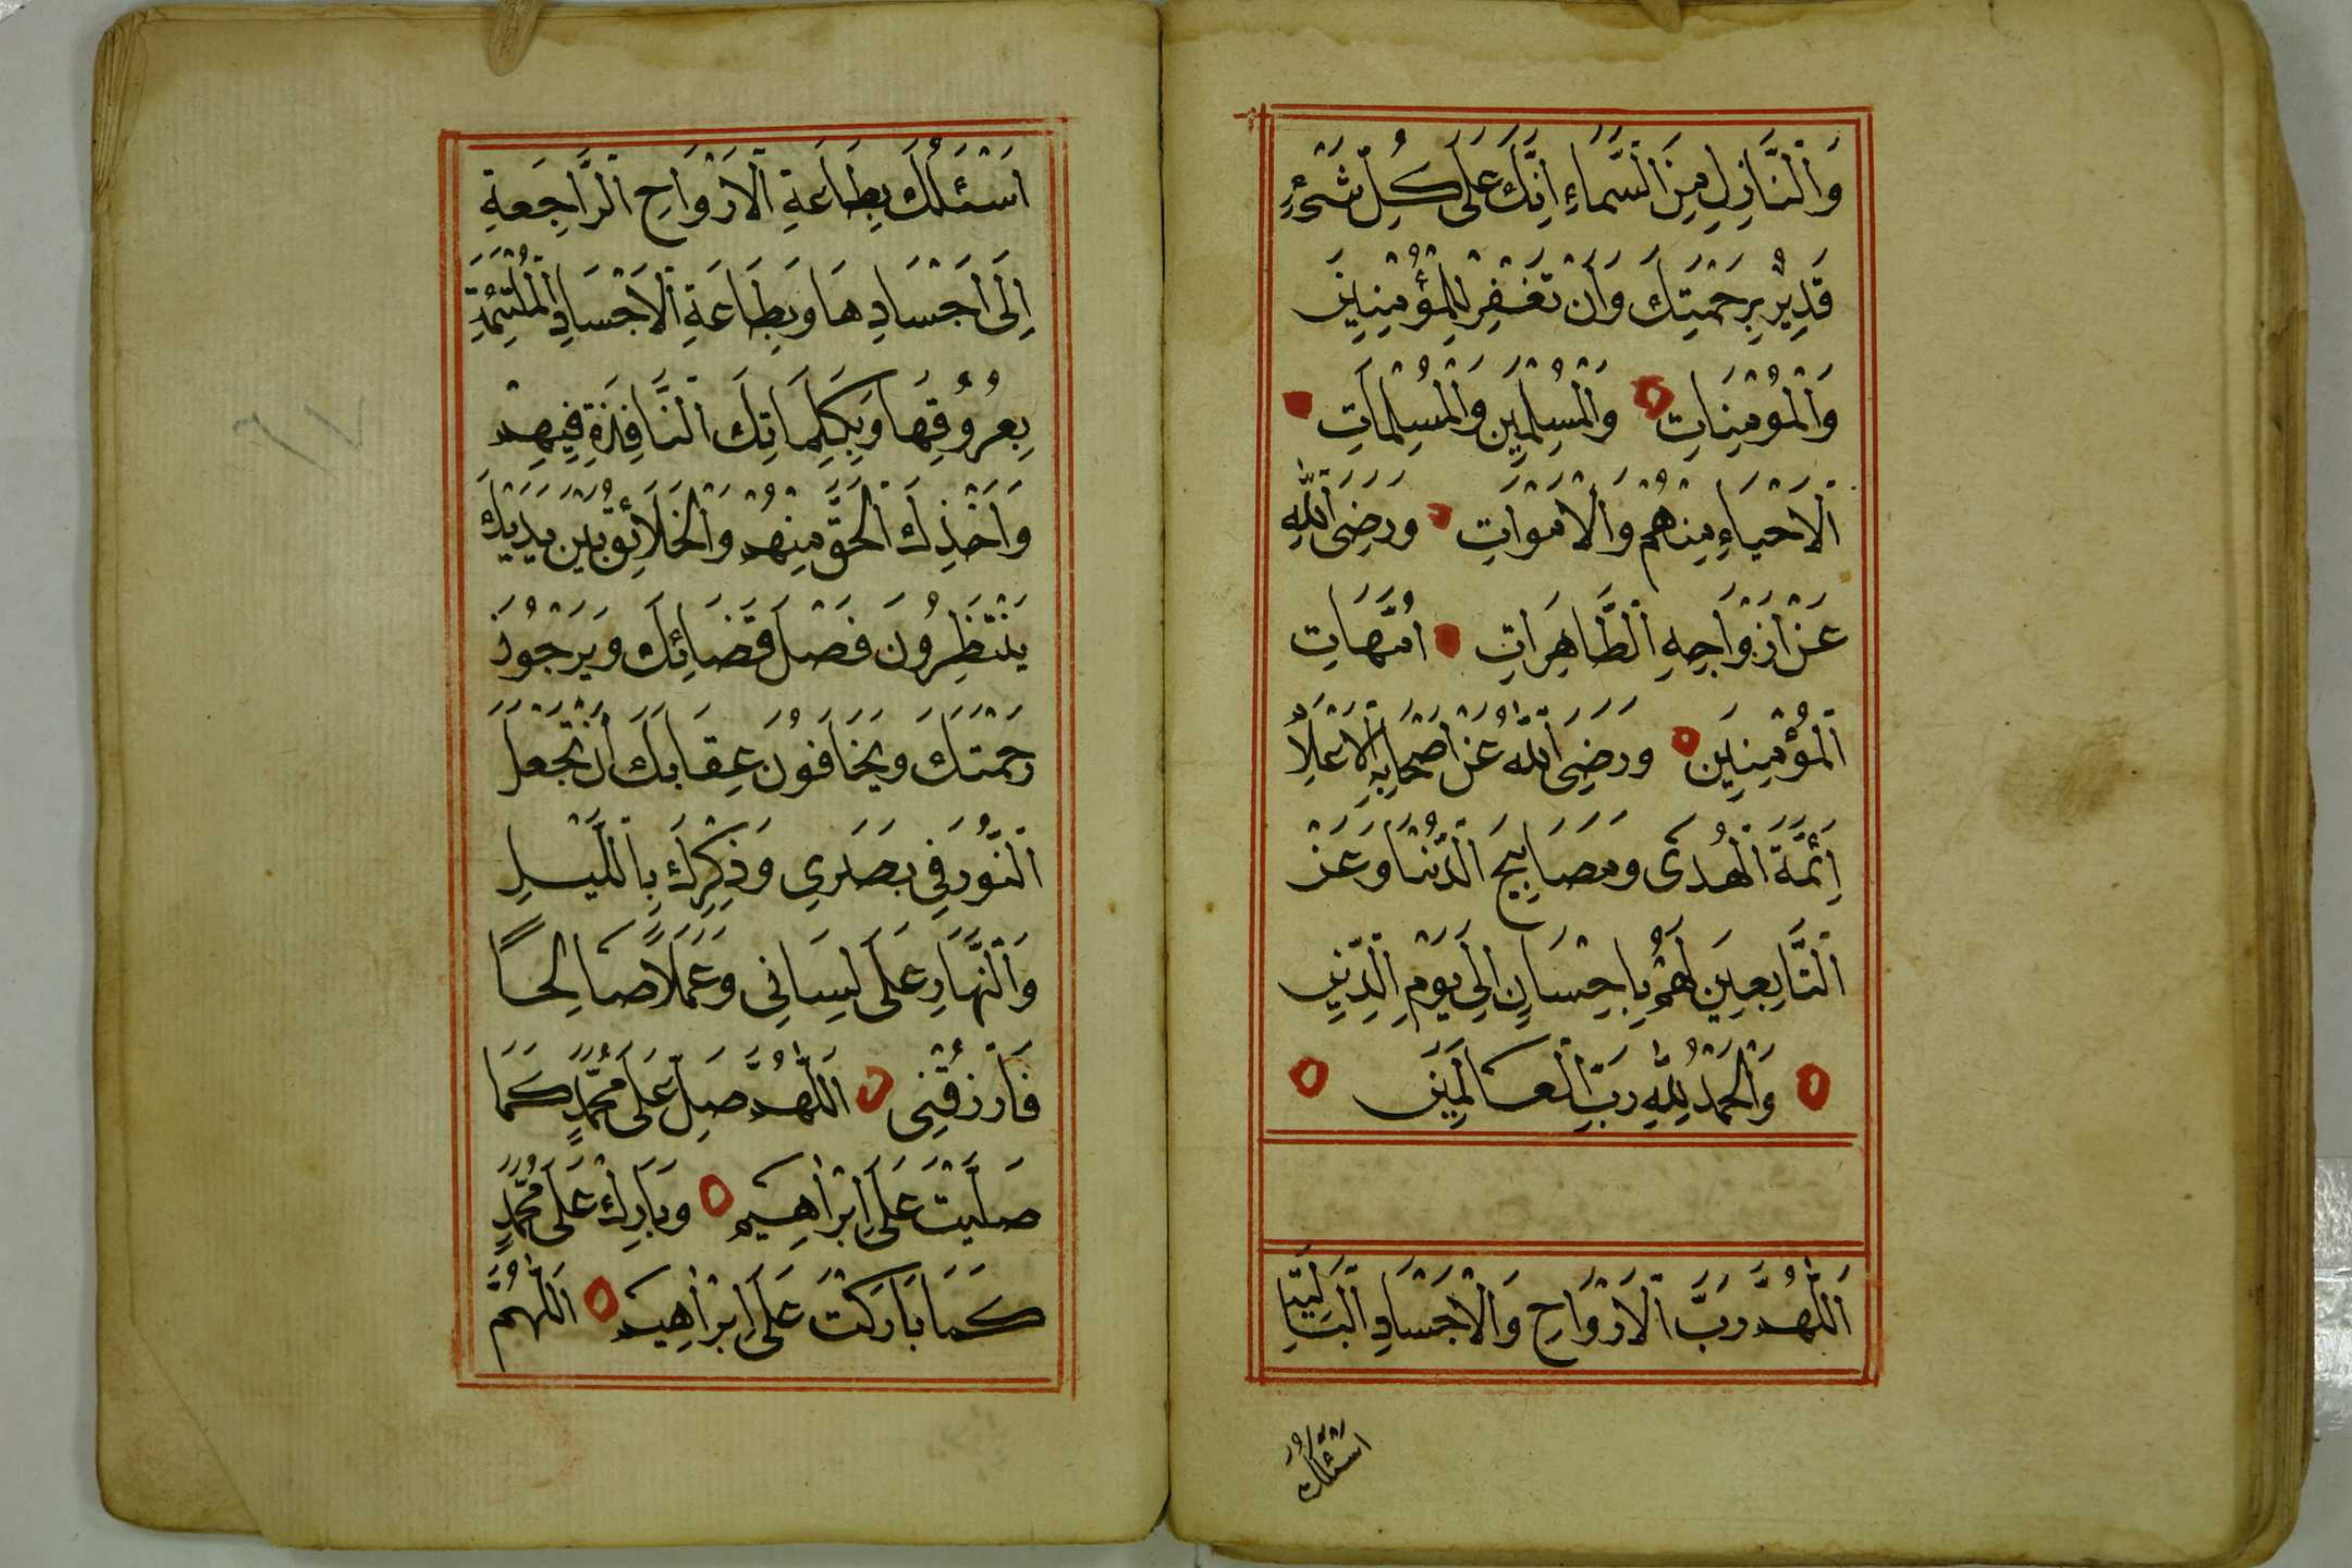 وَالنَّازِلِ مِنَ السَّمَاءِ اِنَّكَ عَلَى كُلِّ شَىْءٍ
قَدِيرٌ بِرَحْمَتِكَ وَاَنْ تَغْفِرَ لِلْمُؤْمِنِينَ
وَالْمُؤْمِنَاتِ وَالْمُسْلِمِينَ وَالْمُسْلِمَاتِ
الْاَحْيَاءِ مِنْهُمْ وَالْاَمْوَاتِ وَرَضِىَ اللّٰهُ
عَنْ اَزْوَاجِهِ الطَّاهِرَاتِ اُمَّهَاتِ
الْمُؤْمِنِينَ وَرَضِىَ اللّٰهُ عَنْ اَصْحَابِهِ الْاَعْلَامِ
اَئِمَّةَ الْهُدَى وَمَصَابِيحَ الدُّنْيَا وَعَنْ
التَّابِعِينَ لَهُمْ بِاِحْسَانٍ اِلَى يَوْمِ الدِّينِ
وَالْحَمْدُ لِلّٰهِ رَبِّ الْعَالَمِينَ
اَللّٰهُمَّ رَبَّ الْاَرْوَاحِ وَالْاَجْسَادِ الْبَالِيَةِ
اَسْئَلُكَ
اَسْئَلُكَ بِطَاعَةِ الْاَرْوَاحِ الرَّاجِعَةِ
اِلَى اَجْسَادِهَا وَبِطَاعَةِ الْاَجْسَادِ الْمُلْتَئِمَةِ
بِعُرُوقِهَا وَبِكَلِمَاتِكَ النَّافِذَةِ فِيهِمْ
وَاَخْذِكَ الْحَقَّ مِنْهُمْ وَالْخَلَائِقُ بَيْنَ يَدَيْكَ
يَنْتَظِرُونَ فَصْلَ قَضَائِكَ وَيَرْجُونَ
رَحْمَتَكَ وَيَخَافُونَ عِقَابَكَ اَنْ تَجْعَلَ
النُّورَ فِي بَصَرِي وَذِكْرَكَ بِاللَّيْلِ
وَالنَّهَارِ عَلَى لِسَانِى وَعَمَلًا صَالِحًا
فَارْزُقْنِى اَللّٰهُمَّ صَلِّ عَلَى مُحَمَّدٍ كَمَا
صَلَّيْتَ عَلَى اِبْرَاهِيمَ وَبَارِكْ عَلَى مُحَمَّدٍ
كَمَا بَارَكْتَ عَلَى اِبْرَاهِيمَ اَللّٰهُمَّ